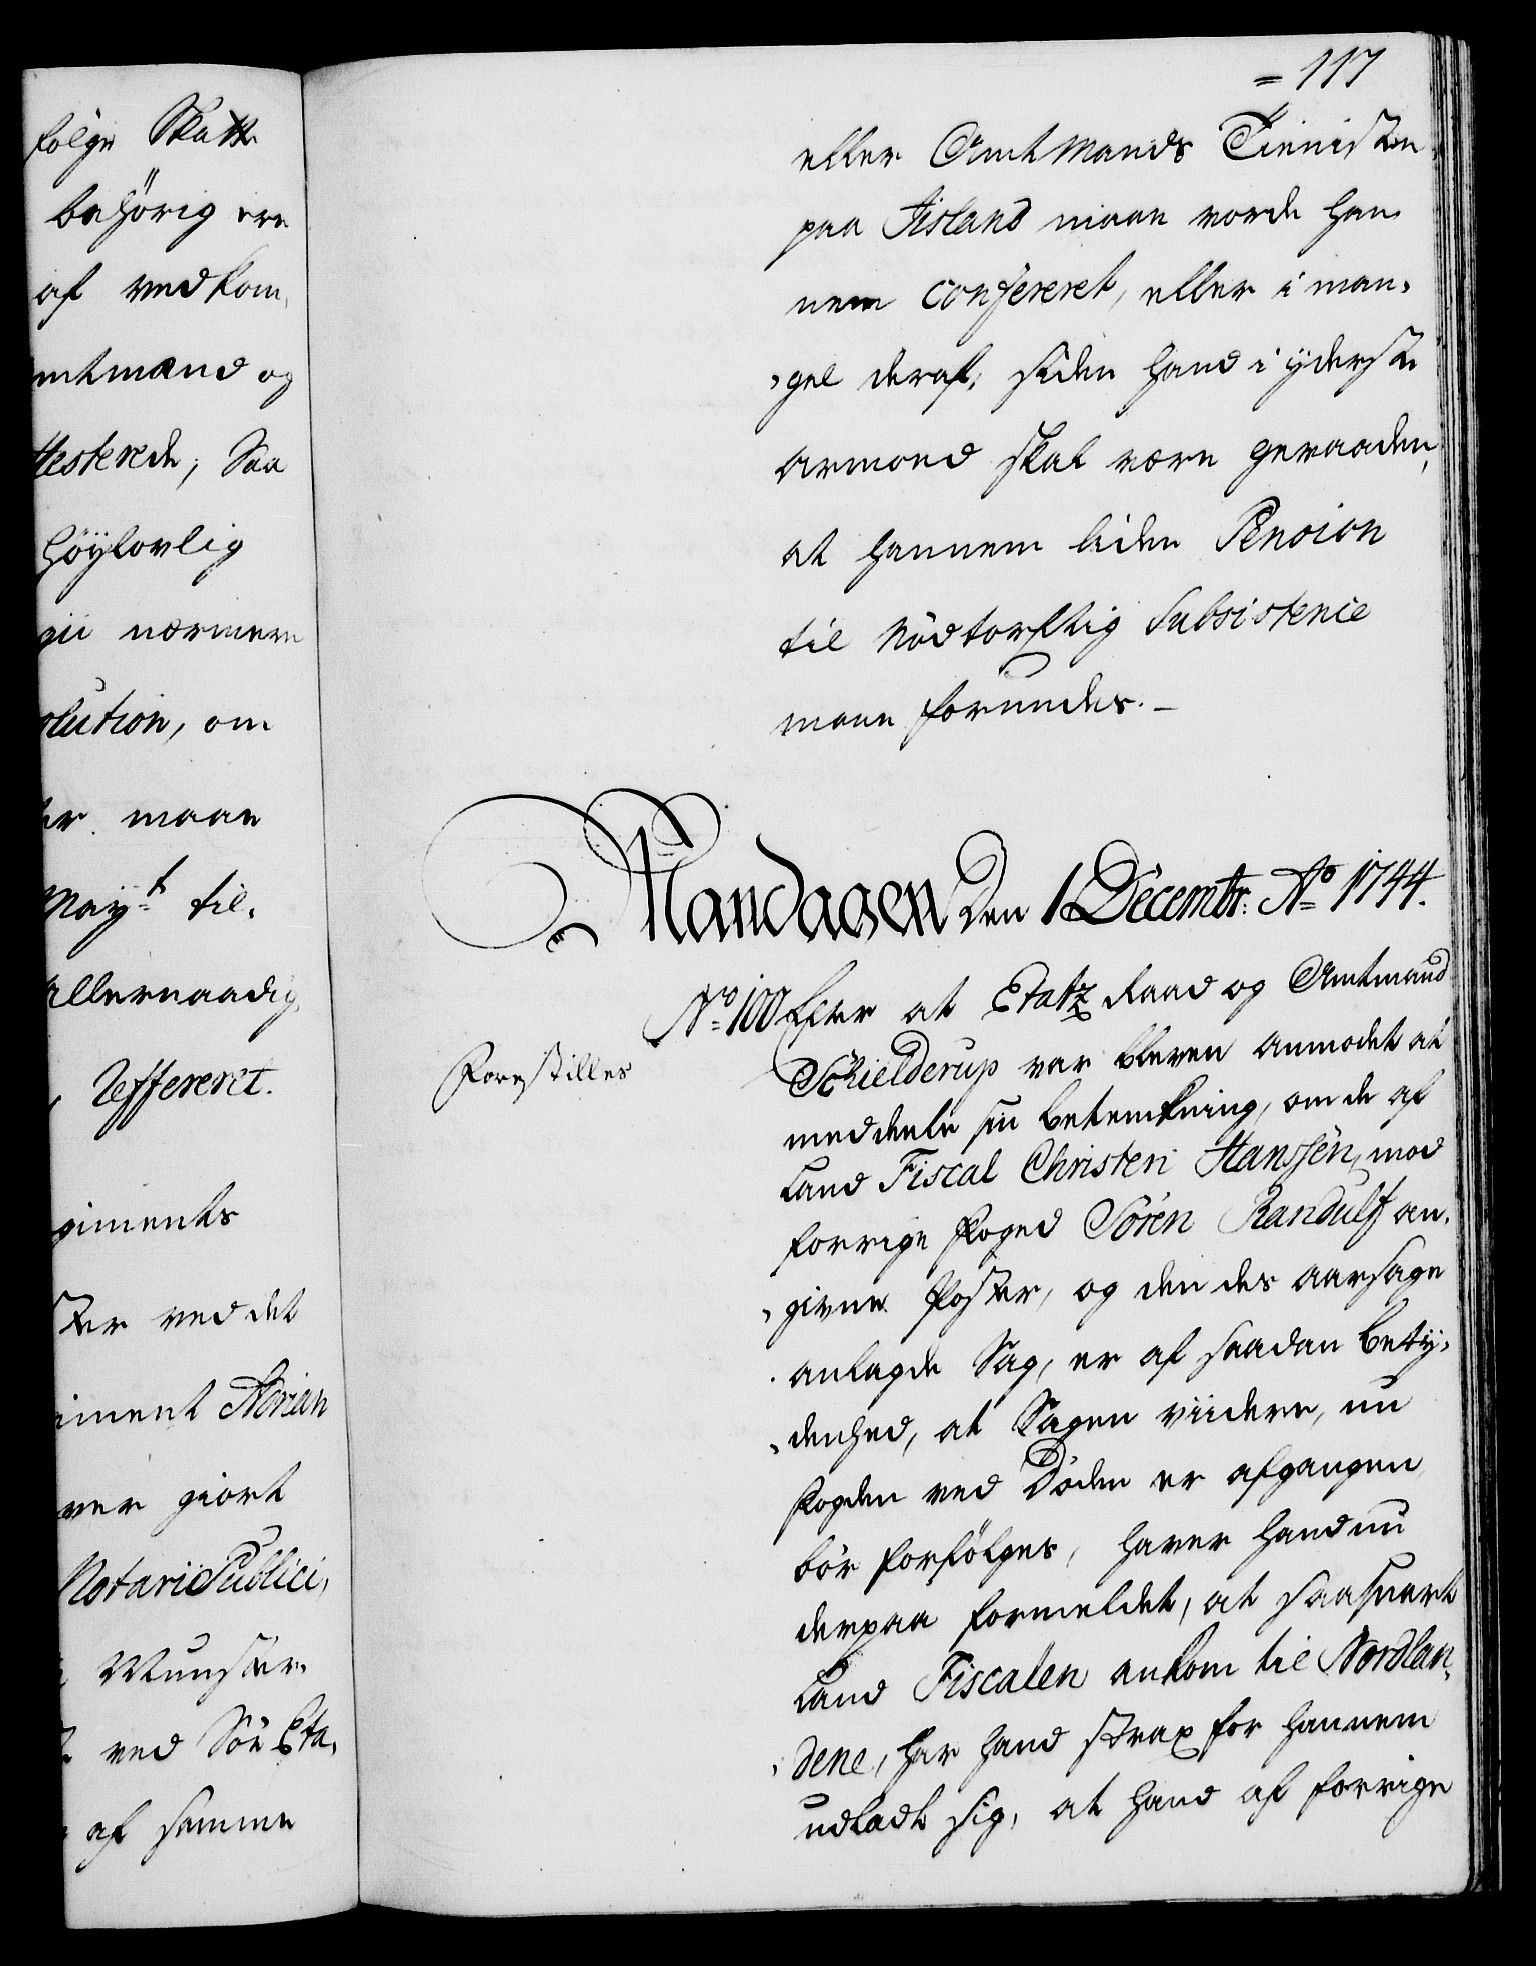 følge Skatte
behörig ere
af vedkom,
mtmand og
ttesterede, Saa
höylovlig
gii nærmere
olution, om
er maae
May:t til,
allernaadig,
refereret.
giments
ster ved det
iment Adrian
ver giort
Notarii Publici,
Munster
ved Sör Eta,
af samme
= 117
eller Amtmands Tieniste
paa Jisland maae vorde han
nem confereret, eller i man,
,gel deraf, siden hand i yderste
armoed skal være geraaden,
at hannem liden Pension
til Nödtorftig Subsistence
maae forundes. –
Mandagen den 1 Decembr: Ao 1744.
No 100 Efter at Etatz Raad og Amtmand
Forestilles
Schielderup var bleven anmodet at
meddeele sin betenkning, om de af
Land Fiscal Christen Hanssen, mod
forrige Foged Sören Randulf an,
,givne Poster, og den des aarsage
anlagde Sag, er af saadan bety,
,denhed, at Sagen viidere, nu
Fogden ved Döden er afgangen,
bör forfölges, haver hand nu
derpaa formeldet, at saasnart
Land Fiscalen ankom til Nordlan,
,dene, har hand strax for hannem
udladt sig, at hand af forrige